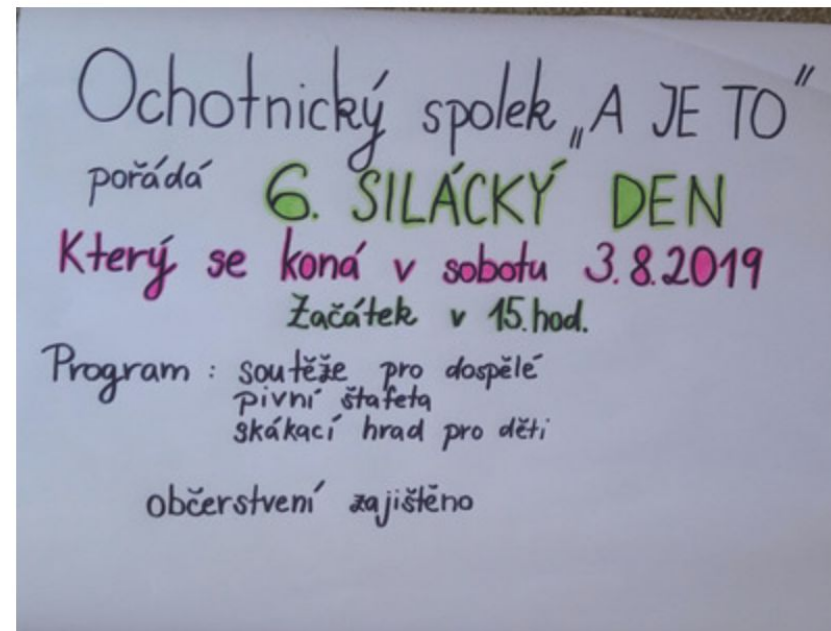 Ochotnický spolek „A JE TO"
pořádá 6. SILÁCKÝ DEN
Který se koná v sobotu 3.8.2019
Začátek v 15.hod.
Program : soutěže pro dospělé
pivní štafeta
skákací hrad pro děti
občerstvení zajištěno